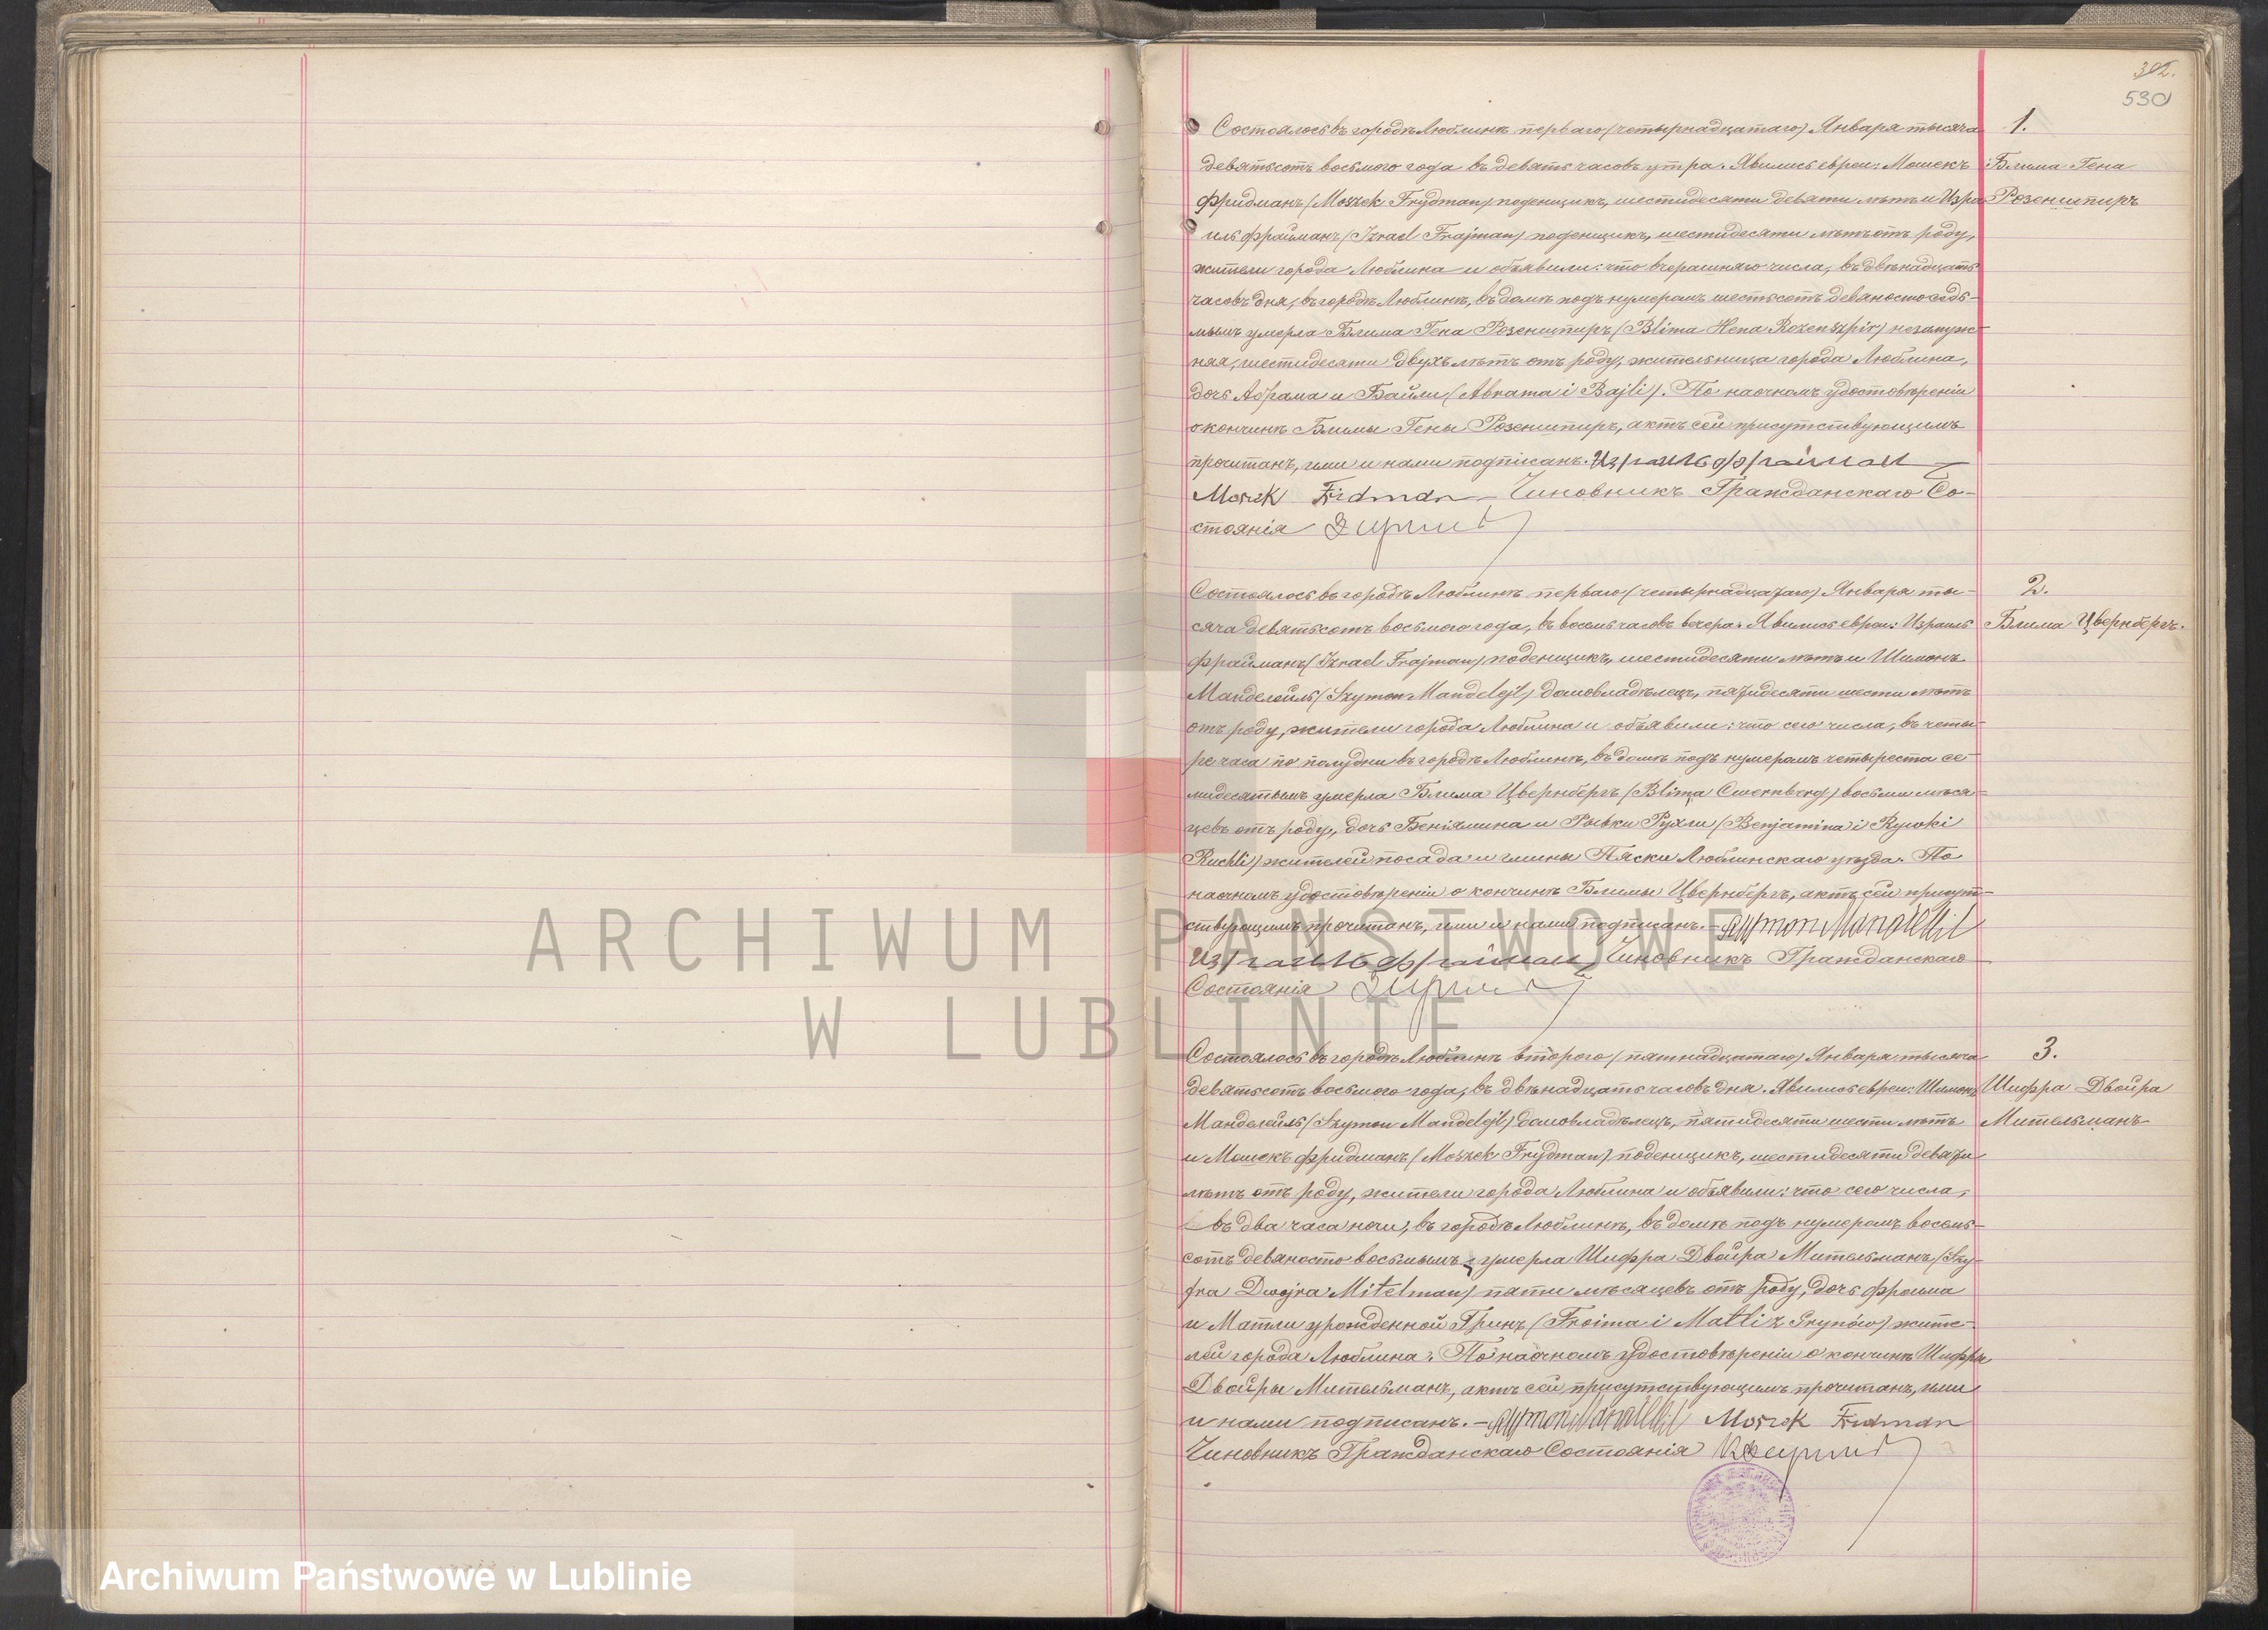 302.
530
1.
Блима Гена
Розеншпиръ
Состоялось въ городѣ Люблинѣ перваго (четырнадцатаго) Января тысяча
девятьсотъ восьмого года въ девять часовъ утра. Явились евреи: Мошекъ
Фридманъ (Moszek Frydman) поденщикъ, шестидесяти девяти лѣтъ и Изра
иль Фрайманъ (Izrael Frajman) поденщикъ, шестидесяти лѣтъ отъ роду,
жители города Люблина и объявили: что вчерашняго числа, въ двѣнадцать
часовъ дня, въ городѣ Люблинѣ, въ домѣ подъ нумеромъ шестьсотъ девяносто седь-
мымъ умерла Блима Гена Розеншпиръ (Blima Hena Rozenszpir) незамуж-
няя, шестидесяти двухъ лѣтъ отъ роду, жительница города Люблина,
дочь Абрама и Байли (Abrama i Bajli). По наочномъ удостовѣреніи
о кончинѣ Блимы Гены Розеншпиръ, актъ сей присутствующимъ
прочитанъ, ими и нами подписанъ. Израиль Фрайман
Moszek Fridman Чиновникъ Гражданскаго Со-
стоянія
2.
Блима Цвернбергъ.
Состоялось въ городѣ Люблинѣ перваго (четырнадцатаго) Января ты-
сяча девятьсотъ восьмого года, въ восемь часовъ вечера. Явились евреи: Израиль
Фрайманъ (Izrael Frajman) поденщикъ, шестидесяти лѣтъ и Шимонъ
Манделейль (Szymon Mandelejl) домовладѣлецъ, пятидесяти шести лѣтъ
отъ роду, жители города Люблина и объявили: что сего числа, въ четы-
ре часа по полудни въ городѣ Люблинѣ, въ домѣ подъ нумеромъ четыреста се-
мидесятымъ умерла Блима Цвернбергъ (Blima Cwernberg) восьми мѣся-
цевъ отъ роду, дочь Беніямина и Рывки Рухли (Benjamina i Rywki
Ruchli) жителей посада и гмины Пяски Люблинскаго уѣзда. По
наочномъ удостовѣреніи о кончинѣ Блимы Цвернбергъ, актъ сей присут-
ствующимъ прочитанъ, ими и нами подписанъ. – Szymon Mandelejl
Израиль Фрайман Чиновникъ Гражданскаго
Состоянія
3.
Шифра Двойра
Мительманъ
Состоялось въ городѣ Люблинѣ второго (пятнадцатаго) Января тысяча
девятьсотъ восьмого года, въ двѣнадцать часовъ дня. Явились евреи: Шимонъ
Манделейль (Szymon Mandelejl) домовладѣлецъ, пятидесяти шести лѣтъ
и Мошекъ Фридманъ (Moszek Frydman) поденщикъ, шестидесяти девяти
лѣтъ отъ роду, жители города Люблина и объявили: что сего числа,
въ два часа ночи, въ городѣ Люблинѣ, въ домѣ подъ нумеромъ восемь-
сотъ девяносто восьмымъ умерла Шифра Двойра Мительманъ (Szy-
fra Dwojra Mitelman) пяти мѣсяцевъ отъ роду, дочь Фроима
и Матли урожденной Гринъ (Froima i Matli z Grynów) жите-
лей города Люблина. По наочномъ удостовѣреніи о кончинѣ Шифры
Двойры Мительманъ, актъ сей присутствующимъ прочитанъ, ими
и нами подписанъ. – Szymon Mandelejl Moszek Fridman
Чиновникъ Гражданскаго Состоянія
ARCHIWUM PAŃSTWOWE
W LUBLINIE
Archiwum Państwowe w Lublinie